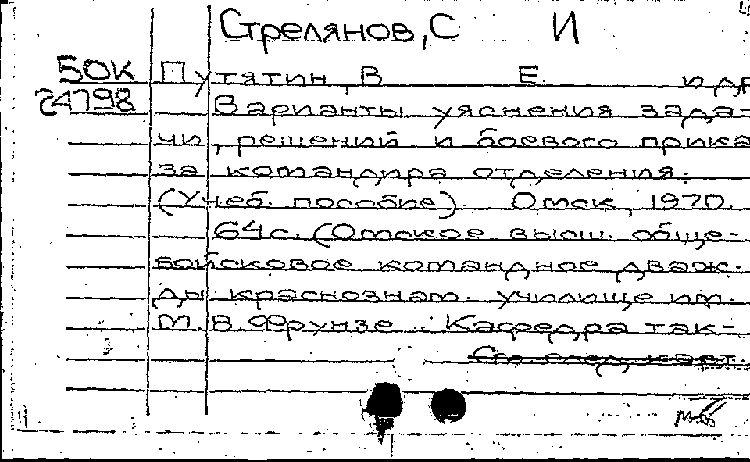 Стрелянов, С И
БОК Путятин, В Е. и др
24798 Варианты уяснения зада-
чи, решений и боевого прика
за командира отделения.
(Учеб. пособие). Омск, 1970.
64с. (Омское высш. обще-
войсковое командное дваж-
ды краснознам. училище им.
М.В. Фрунзе. Кафедра так-
См. след. карт.